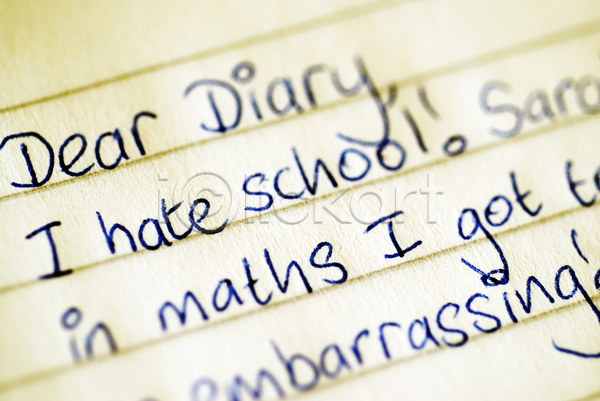 Dear Diary,
I hate school! Sara
in maths I got to
embarrassing!
iclickart